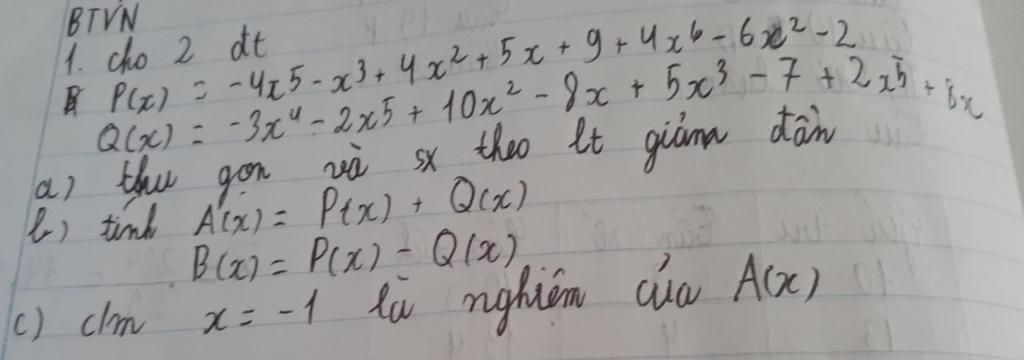 BTVN
1. cho 2 đt
P(x) = -4x5 - x³ + 4x² + 5x + 9 + 4x⁶ - 6x² - 2
Q(x) = -3x⁴ - 2x5 + 10x² - 8x + 5x³ - 7 + 2x⁵ + 8x
a) thu gọn và sx theo lt giảm dần
b) tính A(x) = P(x) + Q(x)
B(x) = P(x) - Q(x)
c) c/m x = -1 là nghiệm của A(x)